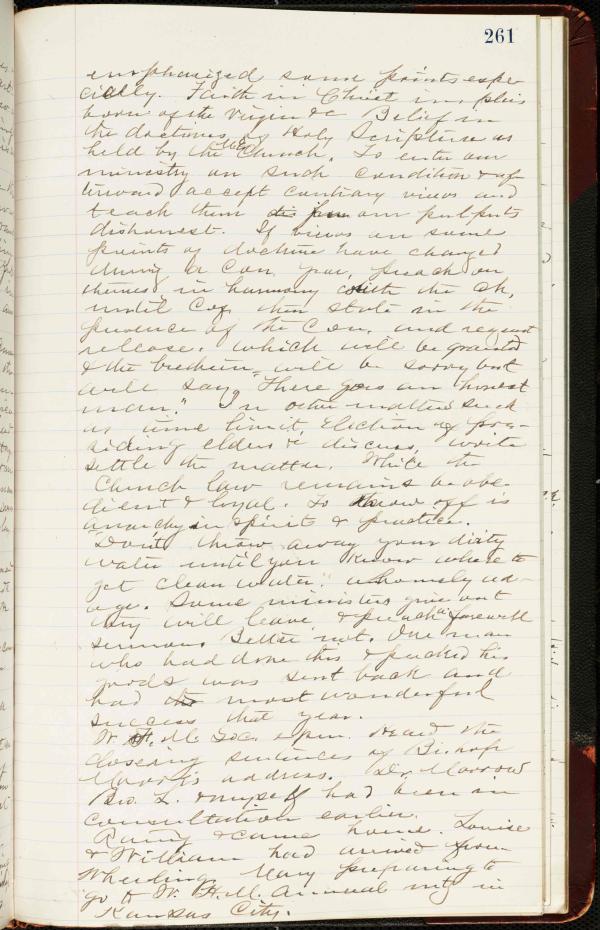 261
emphasized some points espe
cially. Faith in Christ in, plus
born of the Virgin &c Belief in
the doctrines of Holy Scripture as
held by the ME Church. To enter our
ministry on such condition & af-
terward accept contrary views and
teach them from our pulpits
dishonest. If views on some
points of doctrine have changed
during a Con. year, preach on
themes in harmony with the ch,
until Conf. then state in the
presence of the Con. and request
release. which will be granted
& the brethren will be sorry but
will say "There goes an honest
man." In other matters such
as time limit, Election of pre-
siding elders &c discuss, write
settle the matter. While the
Church law remains be obe-
dient & loyal. To throw off is
anarchy in spirit & practice.
"Don't throw away your dirty
water until you know where to
get clean water." a homely ad-
age. Some ministers give out
they will leave, & preach a farewell
sermon. Better not. One man
who had done this & packed his
goods was sent back and
had the most wonderful
success that year.
W. H. M. Soc. 2 p.m. Heard the
closing sentences of Bishop
address. Dr. Morrow
Bro. L. & myself had been in
consultation earlier.
Rainy & came home. Louise
& William had arrived from
Wheeling. Mary preparing to
go to W. H. M. Annual mtg in
Kansas City.